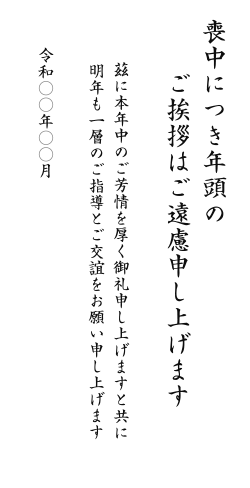 喪中につき年頭の
ご挨拶はご遠慮申し上げます
茲に本年中のご芳情を厚く御礼申し上げますと共に
明年も一層のご指導とご交誼をお願い申し上げます
令和〇〇年〇〇月